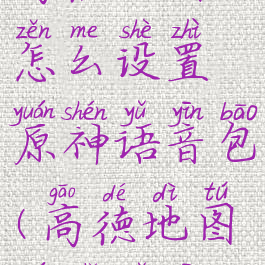 zěn me shè zhì
怎么设置
yuán shén yǔ yīn bāo
原神语音包
gāo dé dì tú
(高德地图